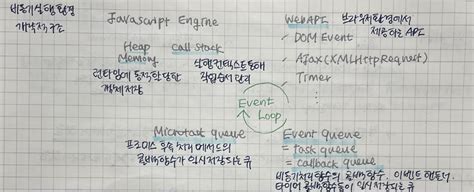 비동기실행환경
개념적구조
JavaScript Engine
Heap
Memory
런타임에 동적할당한
객체저장
call stack
실행컨텍스트통해
작업순서관리
WebAPI
브라우저환경에서
제공하는 API
DOM Event
Ajax (XMLHttpRequest)
Timer
Event
Loop
Microtask queue
프로미스 후속 처리 메서드의
콜백함수가 일시저장되는 큐
Event Queue
= task queue
= callback queue
비동기처리함수의 콜백함수, 이벤트 핸들러,
타이머 콜백함수들이 일시저장되는 큐